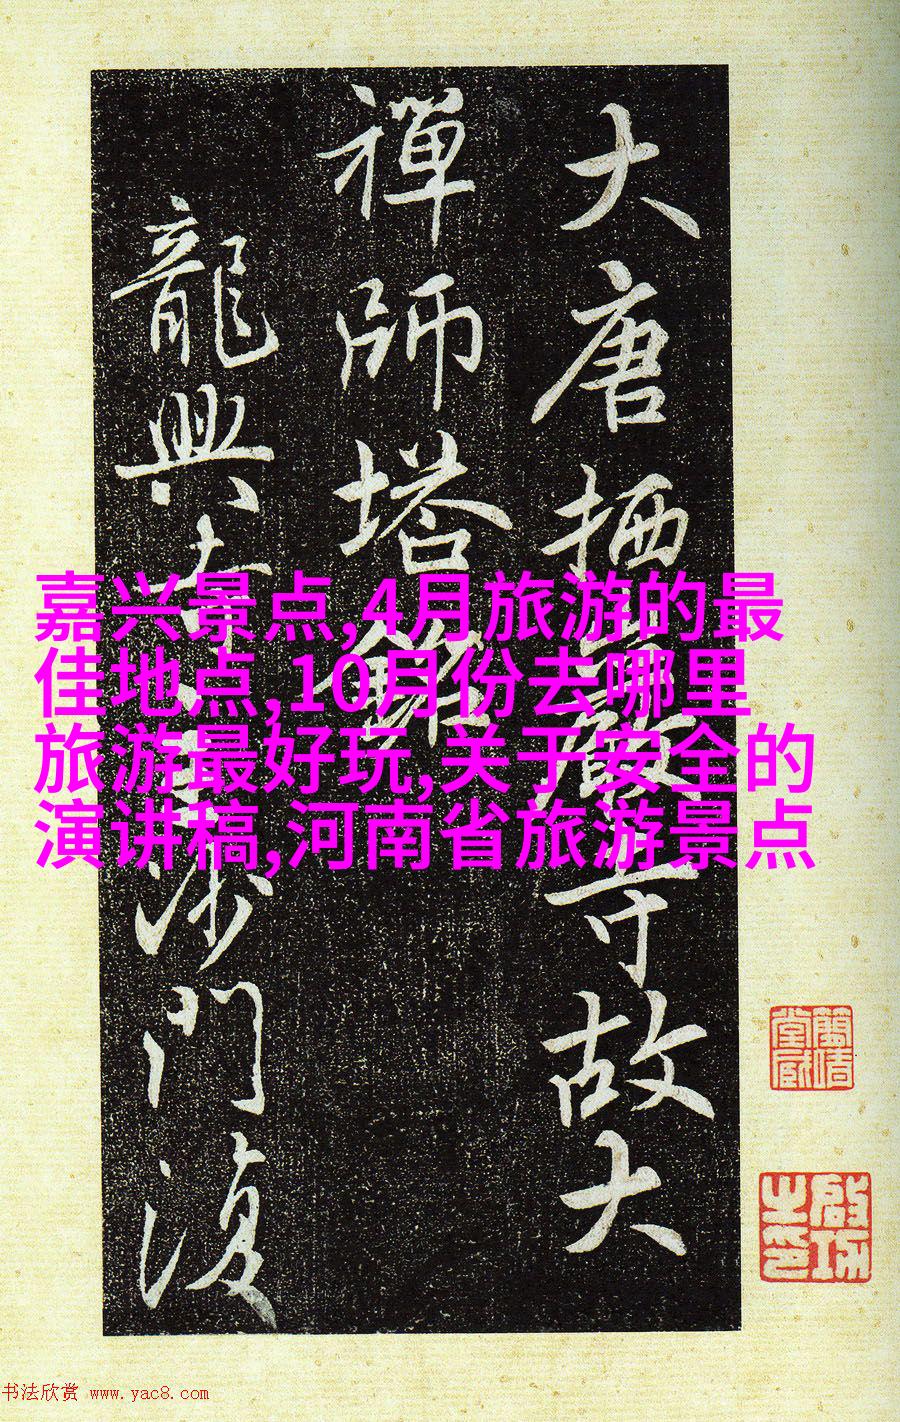 大唐栖巖寺故大
禪師塔銘
龍興沙門復
嘉兴景点,4月旅游的最
佳地点,10月份去哪里
旅游最好玩,关于安全的
演讲稿,河南省旅游景点
啟功之印
书法欣赏 www.yac8.com